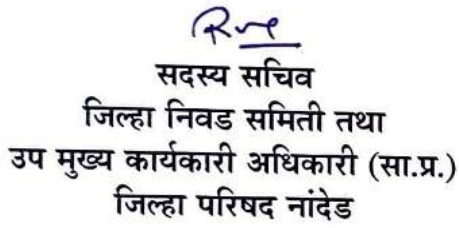 सदस्य सचिव
जिल्हा निवड समिती तथा
उप मुख्य कार्यकारी अधिकारी (सा.प्र.)
जिल्हा परिषद नांदेड